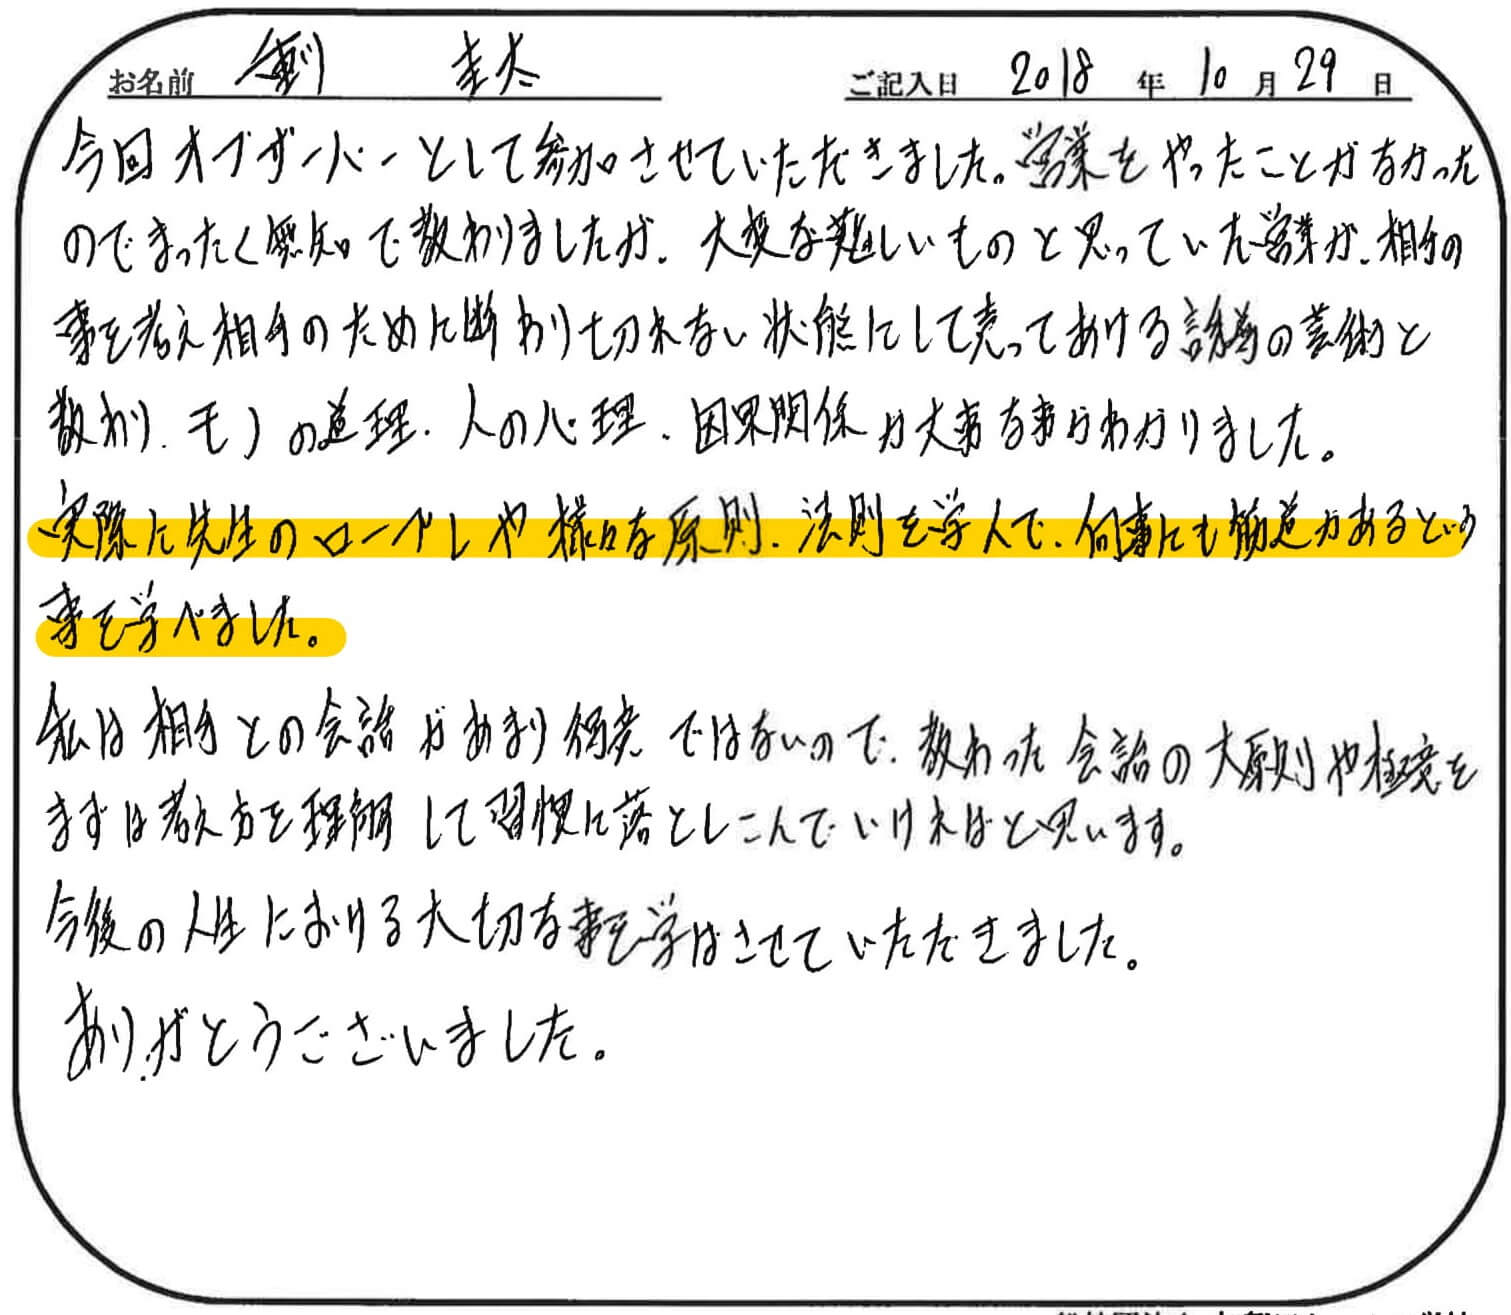 お名前 劉 圭太 ご記入日 2018 年 10 月 29 日
今回オブザーバーとして参加させていただきました。営業をやったことがなかった
のでまったく無知で教わりましたが、大変な難しいものと思っていた営業が、相手の
事を考え相手のために断わり切れない状態にして売ってあげる誘導の芸術と
教わり、モノの道理、人の心理、因果関係が大事な事がわかりました。
実際に先生のロープレや様々な原則、法則を学んで、何事にも筋道があるという
事を学べました。
私は相手との会話があまり得意ではないので、教わった会話の大原則や極意を
まずは考え方を理解して習慣に落としこんでいければと思います。
今後の人生における大切な事を学ばさせていただきました。
ありがとうございました。